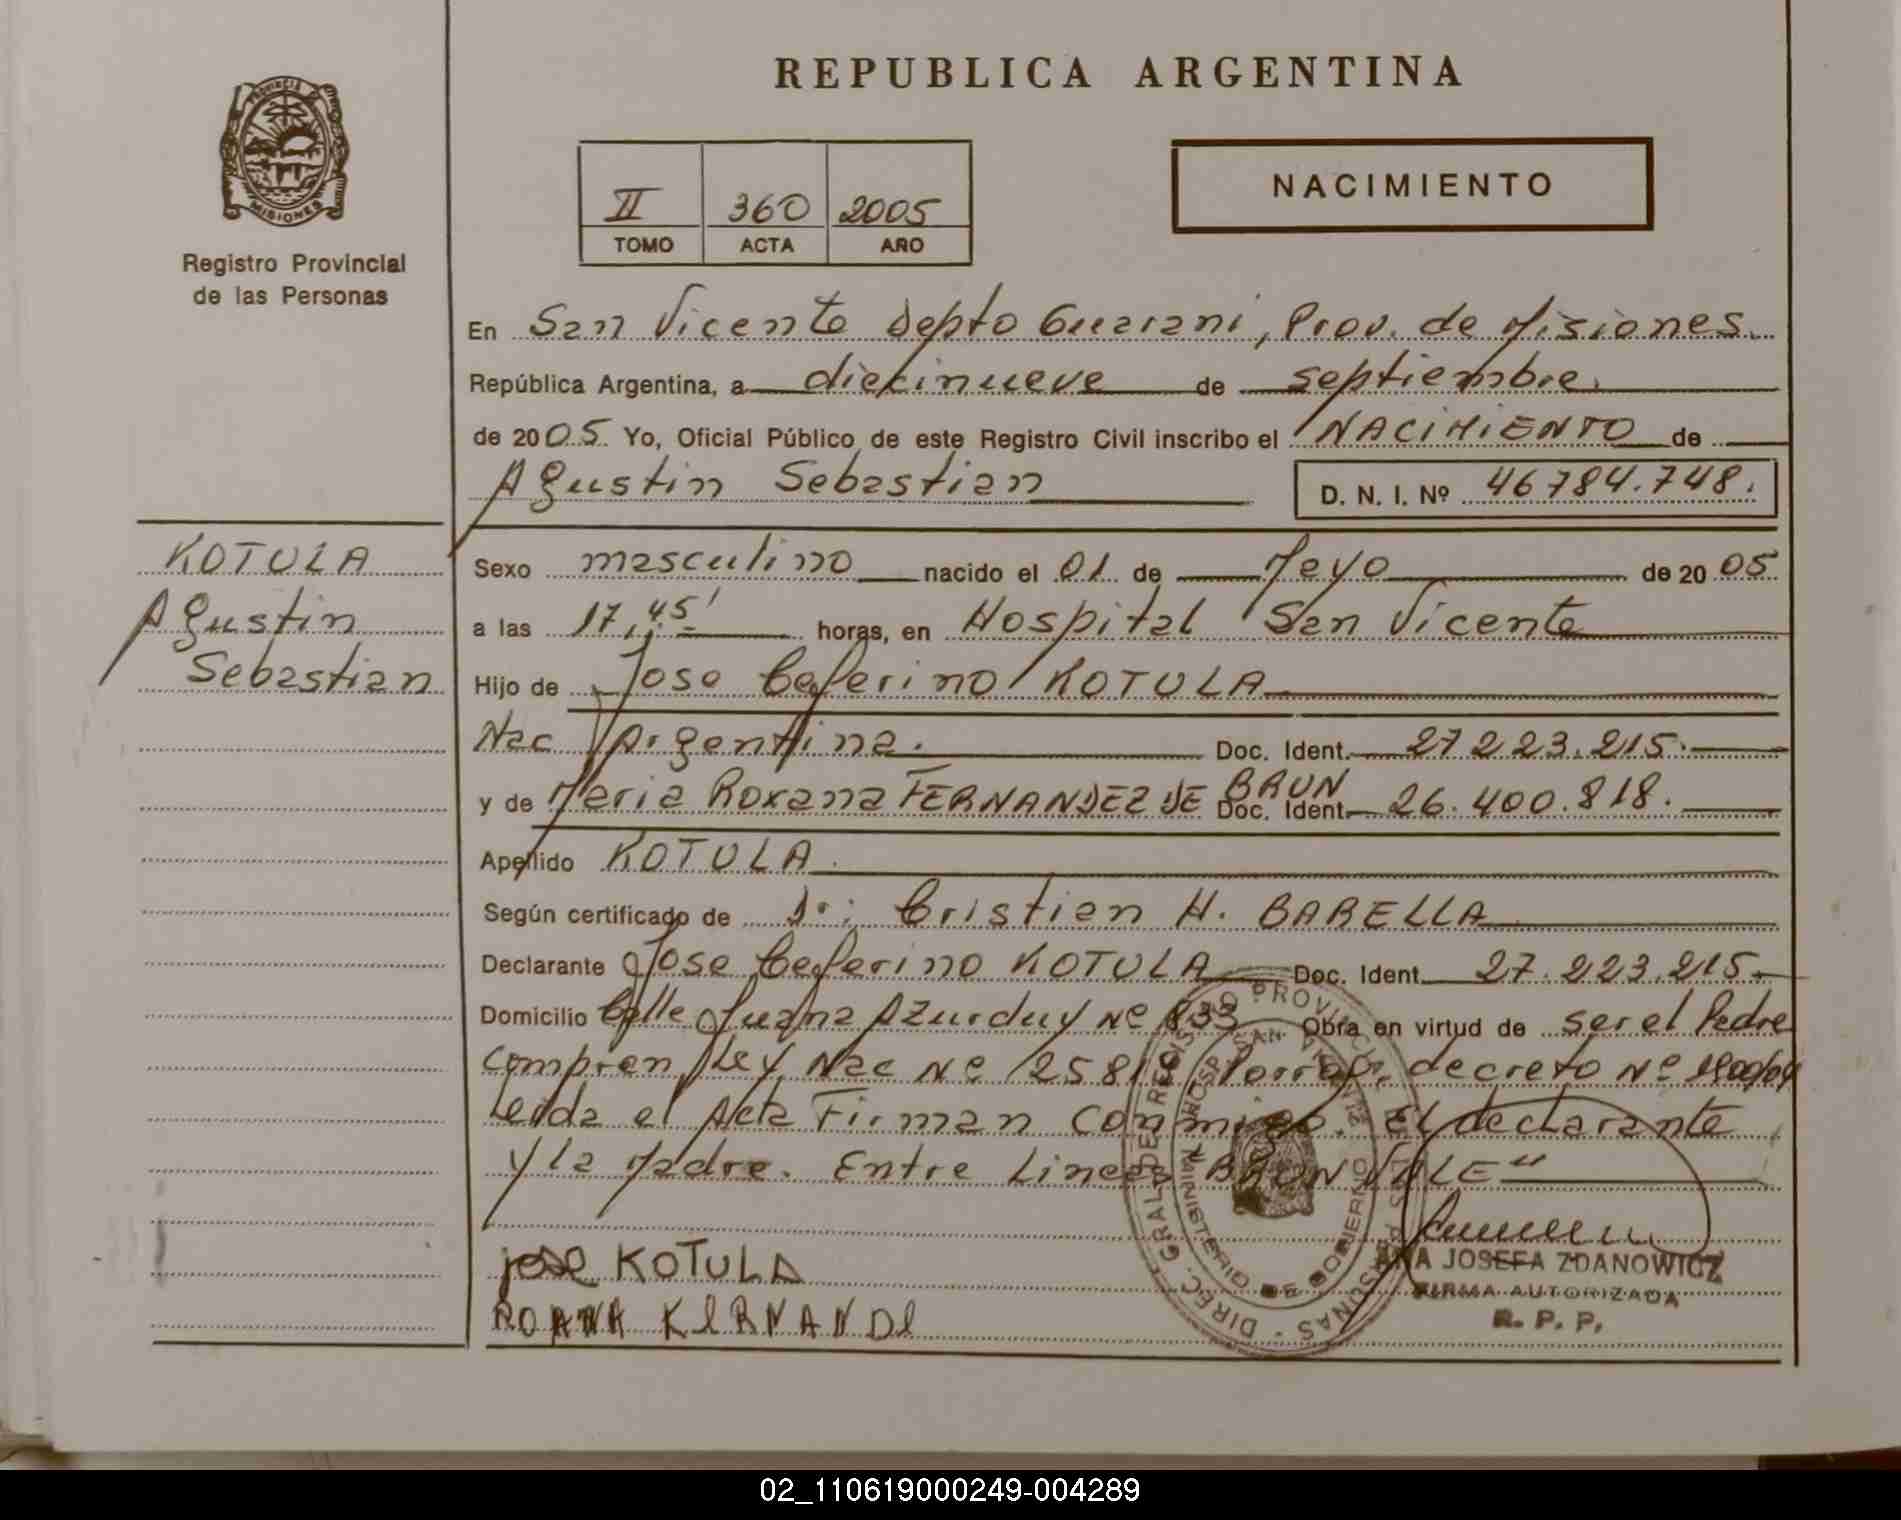 REPUBLICA ARGENTINA
PROVINCIA DE
MISIONES
Registro Provincial
de las Personas
II 360 2005
TOMO ACTA AÑO
NACIMIENTO
En San Vicente Depto Guarani, Prov. de Misiones.
República Argentina, a diecinueve de septiembre.
de 2005 Yo, Oficial Público de este Registro Civil inscribo el NACIMIENTO de
Agustin Sebastian
D. N. I. Nº 46784.748.
KOTULA
Agustin
Sebastian
Sexo masculino nacido el 01 de Mayo de 2005
a las 17,45' horas, en Hospital San Vicente
Hijo de Jose Ceferino KOTULA
Nac Argentina. Doc. Ident. 27 223.215.
y de Maria Roxana FERNANDEZ DE BRUN Doc. Ident. 26.400.818.
Apellido KOTULA.
Según certificado de Dr: Cristian H. BARELLA
Declarante Jose Ceferino KOTULA Doc. Ident. 27.223.215.
Domicilio Calle Juana Azurduy Nº 833 Obra en virtud de ser el Padre
Ley Nac Nº decreto Nº
Leida el Acta Firman Conmigo. El declarante
y la Madre. Entre Lineas BRUN VALE"
jose KOTULA
ANA JOSEFA ZDANOWICZ
FIRMA AUTORIZADA
R. P. P.
DIREC. GRAL DE REGISTRO PROVINCIAL DE LAS PERSONAS
HOSP. SAN VICENTE
MINISTERIO DE GOBIERNO
02_110619000249-004289